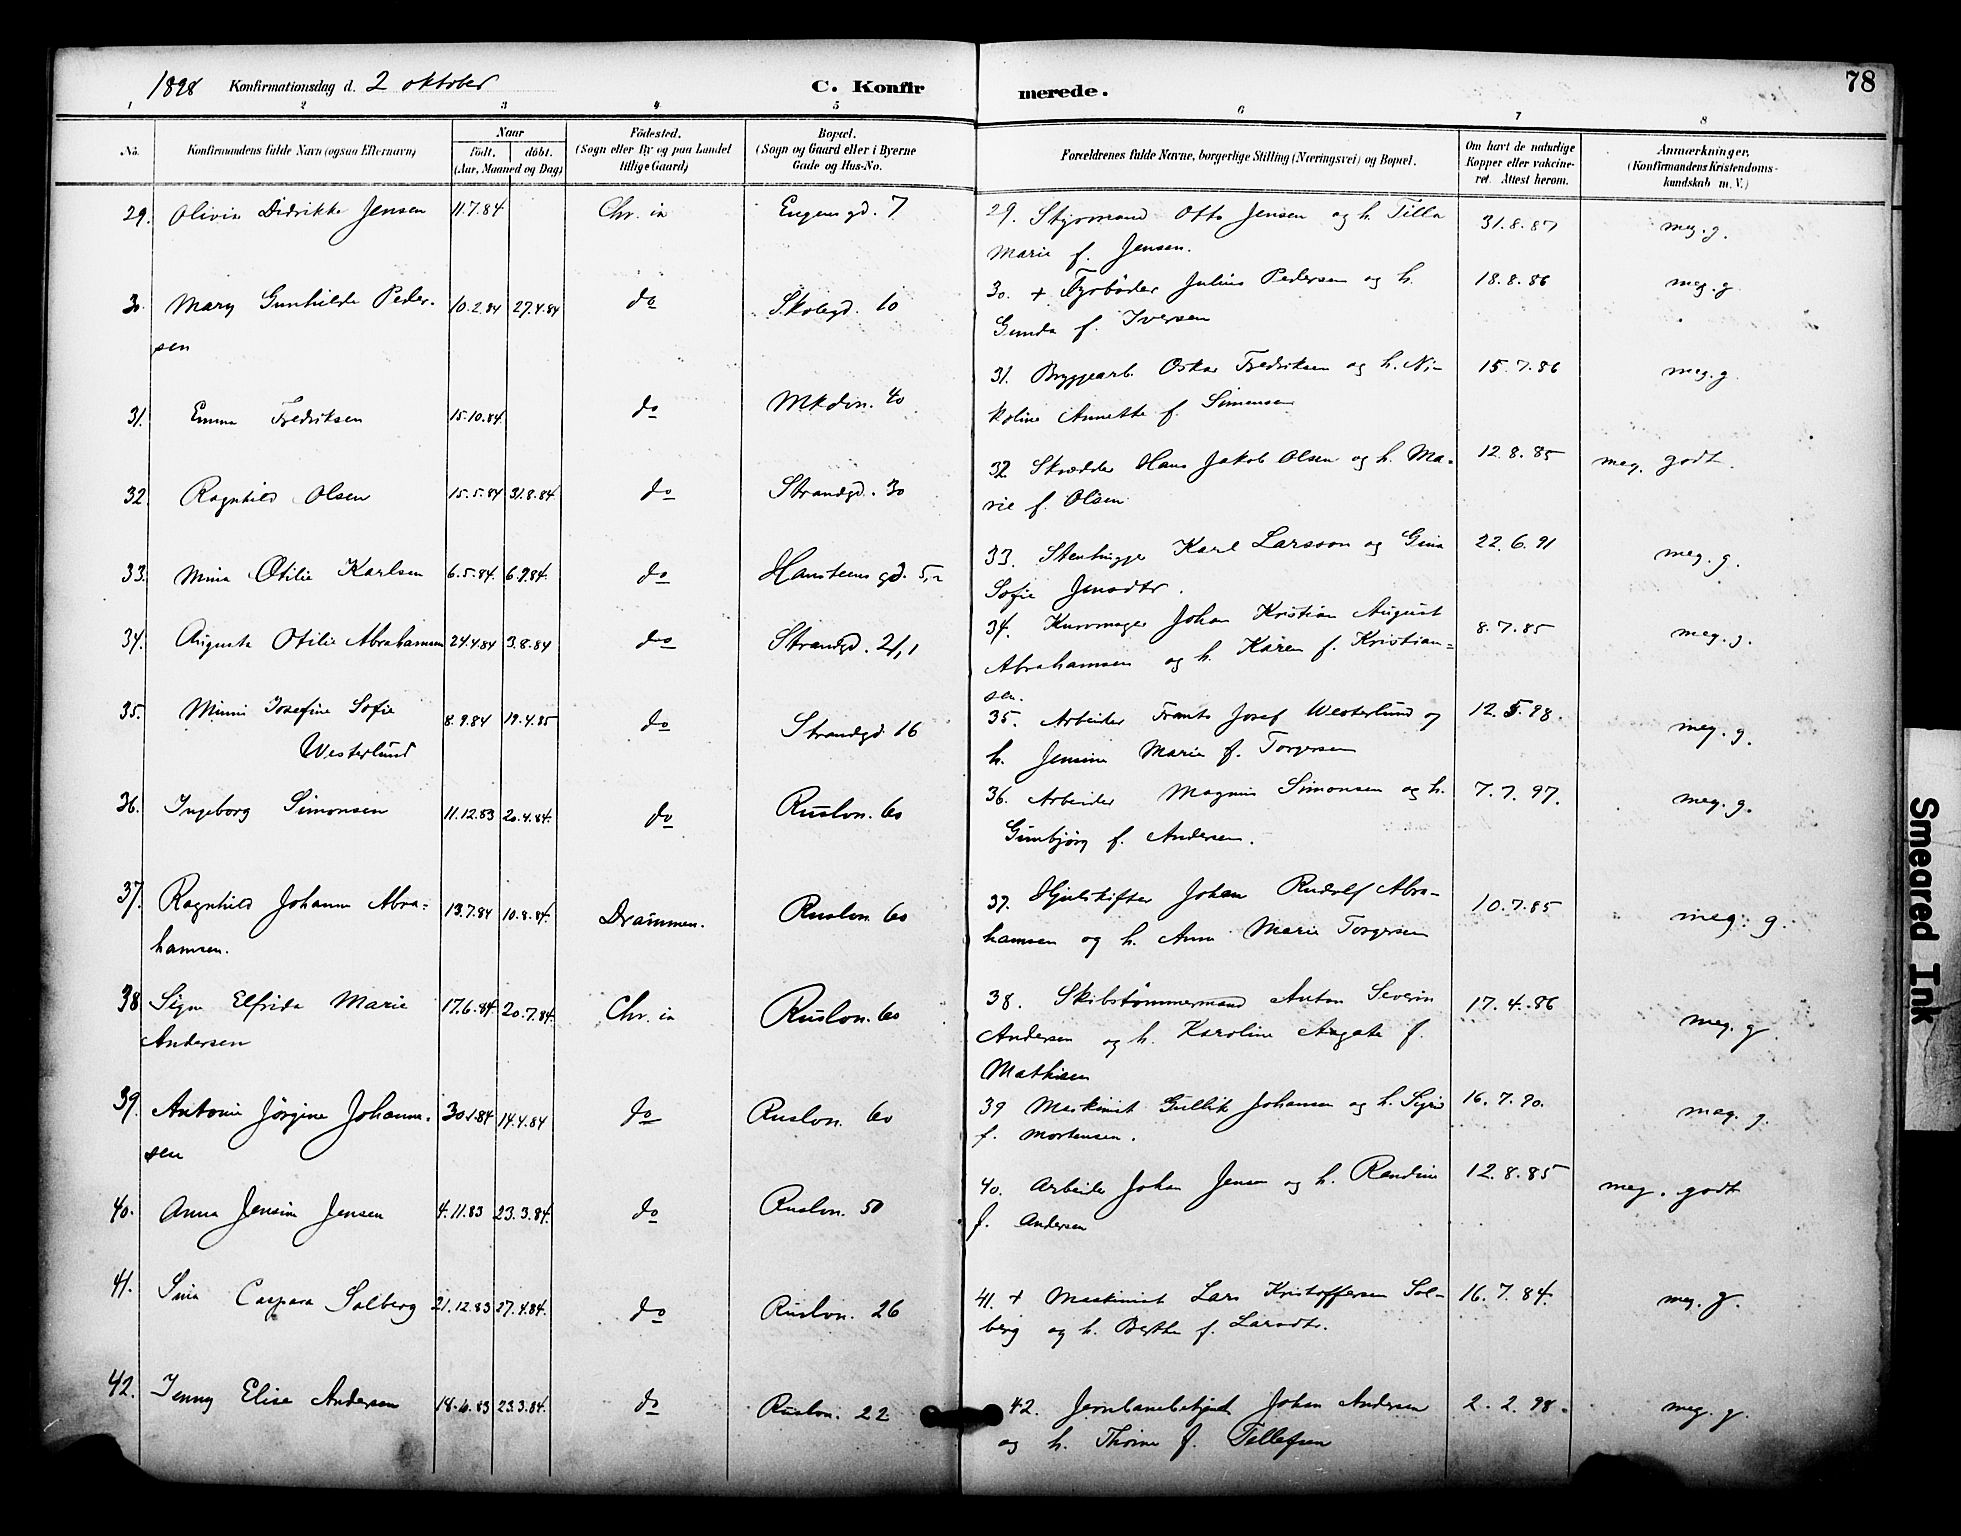 1898 Konfirmationsdag d. 2 oktober C. Konfir
merede. 78
1 2 3 4 5 6 7 8
No. Konfirmandens fulde Navn (ogsaa Efternavn). Naar
födt, döbt.
(Aar, Maaned og Dag)
Födested.
(Sogn eller By og paa Landet
tillige Gaard)
Bopæl.
(Sogn og Gaard eller i Byerne
Gade og Hus-No.
Forældrenes fulde Navne, borgerlige Stilling (Næringsvei) og Bopæl.
Om havt de naturlige
Kopper eller vakcine-
ret. Attest herom.
Anmærkninger.
(Konfirmandens Kristendoms-
kundskab m. V.)
29. Olivia Didrikke Jensen 11.7.84 Chr. ia Eugeniegd. 7 29. Styrmand Otto Jensen og h. Tilla 31.8.87 meg. g.
Marie f. Jensen.
30. Mary Gunhilda Peder- 10.2.84 27.4.84 do Skolegd. 10 30. + Fyrböder Julius Pedersen og h. 18.8.86 meg. g
sen Gunda f. Iversen
31. Emma Fredriksen 15.10.84 do Mkdvn. 40 31. Bryggearb. Oskar Fredriksen og h. Ni- 15.7.86 meg. g.
koline Annette f. Simensen
32. Ragnhild Olsen 15.5.84 31.8.84 do Strandgd. 30 32. Skrædder Hans Jakob Olsen og h. Ma- 12.8.85 meg. godt.
rie f. Olsen
33. Mina Otilie Karlsen 6.5.84. 6.9.84. do Hansteens gd. 33. Stenhugger Karl Larsson og Gina 22.6.91 meg. g.
Sofie Jensdtr.
34. Augusta Otilie Abrahamsen 24.4.84 3.8.84 do Strandgd. 21 34. Kurvmager Johan Kristian August 8.7.85 meg. g.
Abrahamsen og h. Karen f. Kristian-
sen.
35. Minni Josefine Sofie 8.9.84 19.4.85 do Strandgd. 16 35. Arbeider Frants Josef Westerlund og 12.5.98. meg. g.
Westerlund h. Jensine Marie f. Torgersen
36. Ingeborg Simonsen 11.12.83 20.4.84. do Ruslvn. 60 36. Arbeider Magnus Simonsen og h. 7.7.97. meg. g.
Gunbjörg f. Andersen.
37. Ragnhild Johanne Abra- 13.7.84 10.8.84. Drammen. Ruslvn. 60 37. Hjulskifter Johan Rudolf Abra- 10.7.85 meg. g.
hamsen. hamsen og h. Anna Marie Torgersen
38 Signe Elfrida Marie 17.6.84. 20.7.84. Chr. ia Ruslvn. 60 38. Skibstömmermand Anton Severin 17.4.86 meg. g.
Andersen Andersen og h. Karoline Augeta f.
Mathisen
39. Antonie Jörgine Johanne- 30.1.84 14.4.84 do Ruslvn. 60 39 Maskinist Gullik Johansen og h. Sigrid 16.7.90. meg. g.
sen f. Mortensen.
40. Anna Jensine Jensen 4.11.83 23.3.84. do Ruslvn. 50 40. Arbeider Johan Jensen og h. Randine 12.8.85 meg. godt
f. Andersen
41. Sina Caspara Solberg 21.12.83 27.4.84. do Ruslvn. 26 41. + Maskinist Lars Kristoffersen Sol- 16.7.84. meg. g.
berg og h. Berthe f. Larsdtr.
42. Jenny Elise Andersen 23.3.84. do Ruslvn. 22 42. Jernbanebetjent Johan Andersen 2.2.98. meg. g.
og h. Thorine f. Tellefsen
Smeared Ink